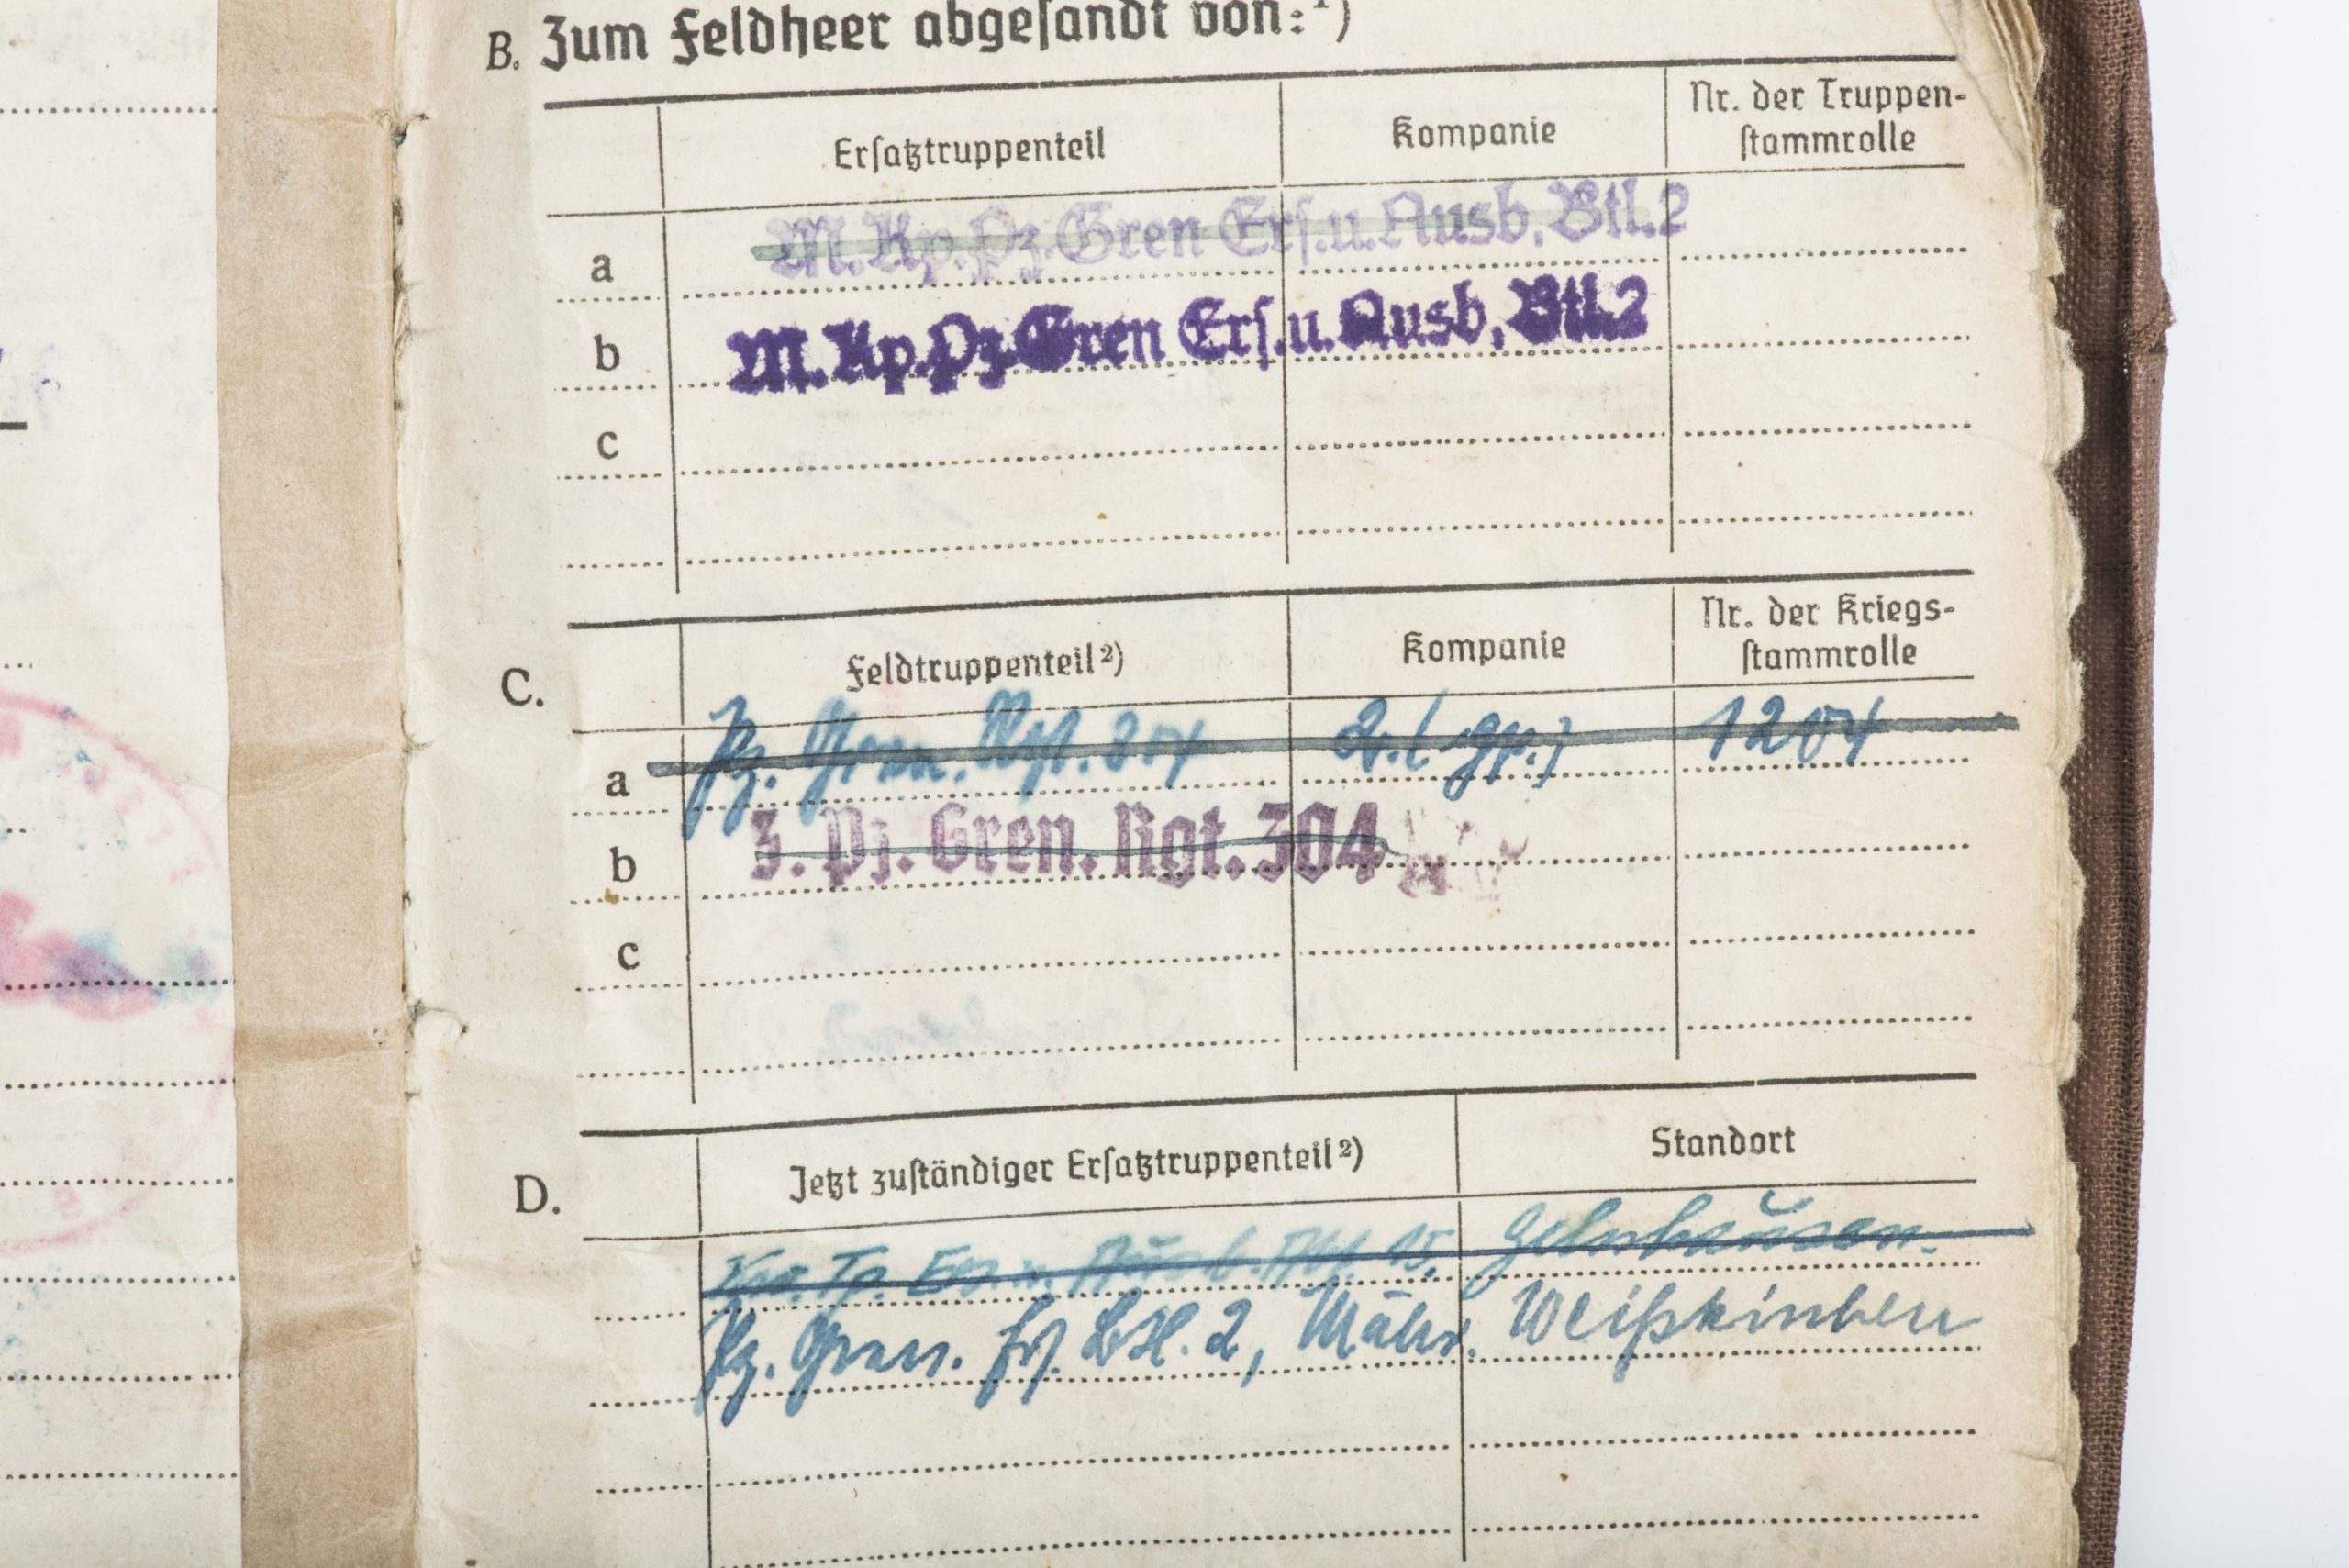 B. Zum Feldheer abgesandt von:¹)
Ersatztruppenteil Kompanie Nr. der Truppen-
stammrolle
a M.Kp.Pz.Gren Ers.u.Ausb.Btl.2
b M.Kp.Pz.Gren Ers.u.Ausb.Btl.2
c
C. Feldtruppenteil²) Kompanie Nr. der Kriegs-
stammrolle
a Pz. Gren. Rgt. 304 2.(gp.) 1204
b 3. Pz. Gren. Rgt. 304
c
D. Jetzt zuständiger Ersatztruppenteil²) Standort
Tr. Ers. u. Ausb. Abt. 15, Gelnhausen.
Pz. Gren. Ers. Btl. 2, Mähr. Weißkirchen